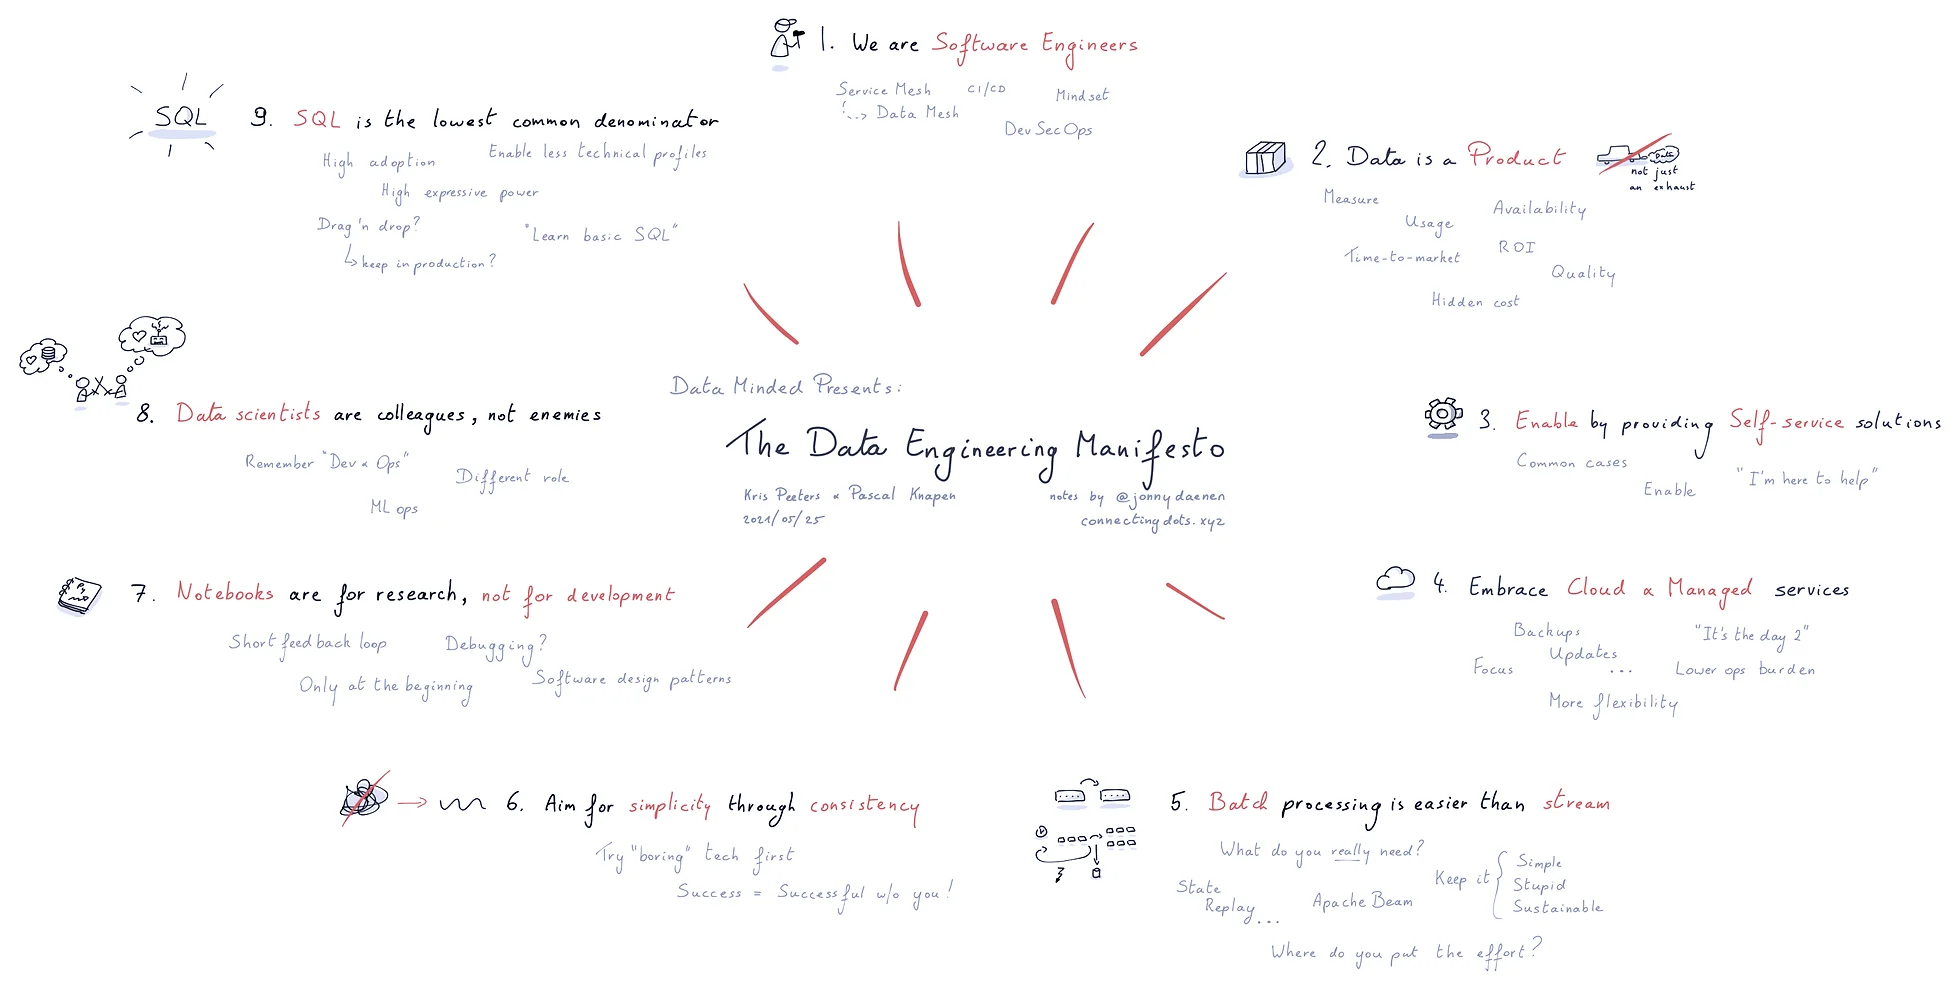 Data Minded Presents:
The Data Engineering Manifesto
Kris Peeters & Pascal Knapen
2021/05/25
notes by @jonnydaenen
connectingdots.xyz
1. We are Software Engineers
Service Mesh
CI/CD
Mindset
Data Mesh
DevSecOps
2. Data is a Product
Data
not just
an exhaust
Measure
Usage
Availability
Time-to-market
ROI
Quality
Hidden cost
3. Enable by providing Self-service solutions
Common cases
Enable
"I'm here to help"
4. Embrace Cloud & Managed services
Backups
"It's the day 2"
Updates
Focus
...
Lower ops burden
More flexibility
5. Batch processing is easier than stream
What do you really need?
Keep it {
Simple
Stupid
Sustainable
State
Replay
...
Apache Beam
Where do you put the effort?
6. Aim for simplicity through consistency
Try "boring" tech first
Success = Successful w/o you!
7. Notebooks are for research, not for development
Short feedback loop
Debugging?
Only at the beginning
Software design patterns
8. Data scientists are colleagues, not enemies
Remember "Dev & Ops"
Different role
ML ops
SQL
9. SQL is the lowest common denominator
High adoption
Enable less technical profiles
High expressive power
Drag 'n drop?
"Learn basic SQL"
keep in production?